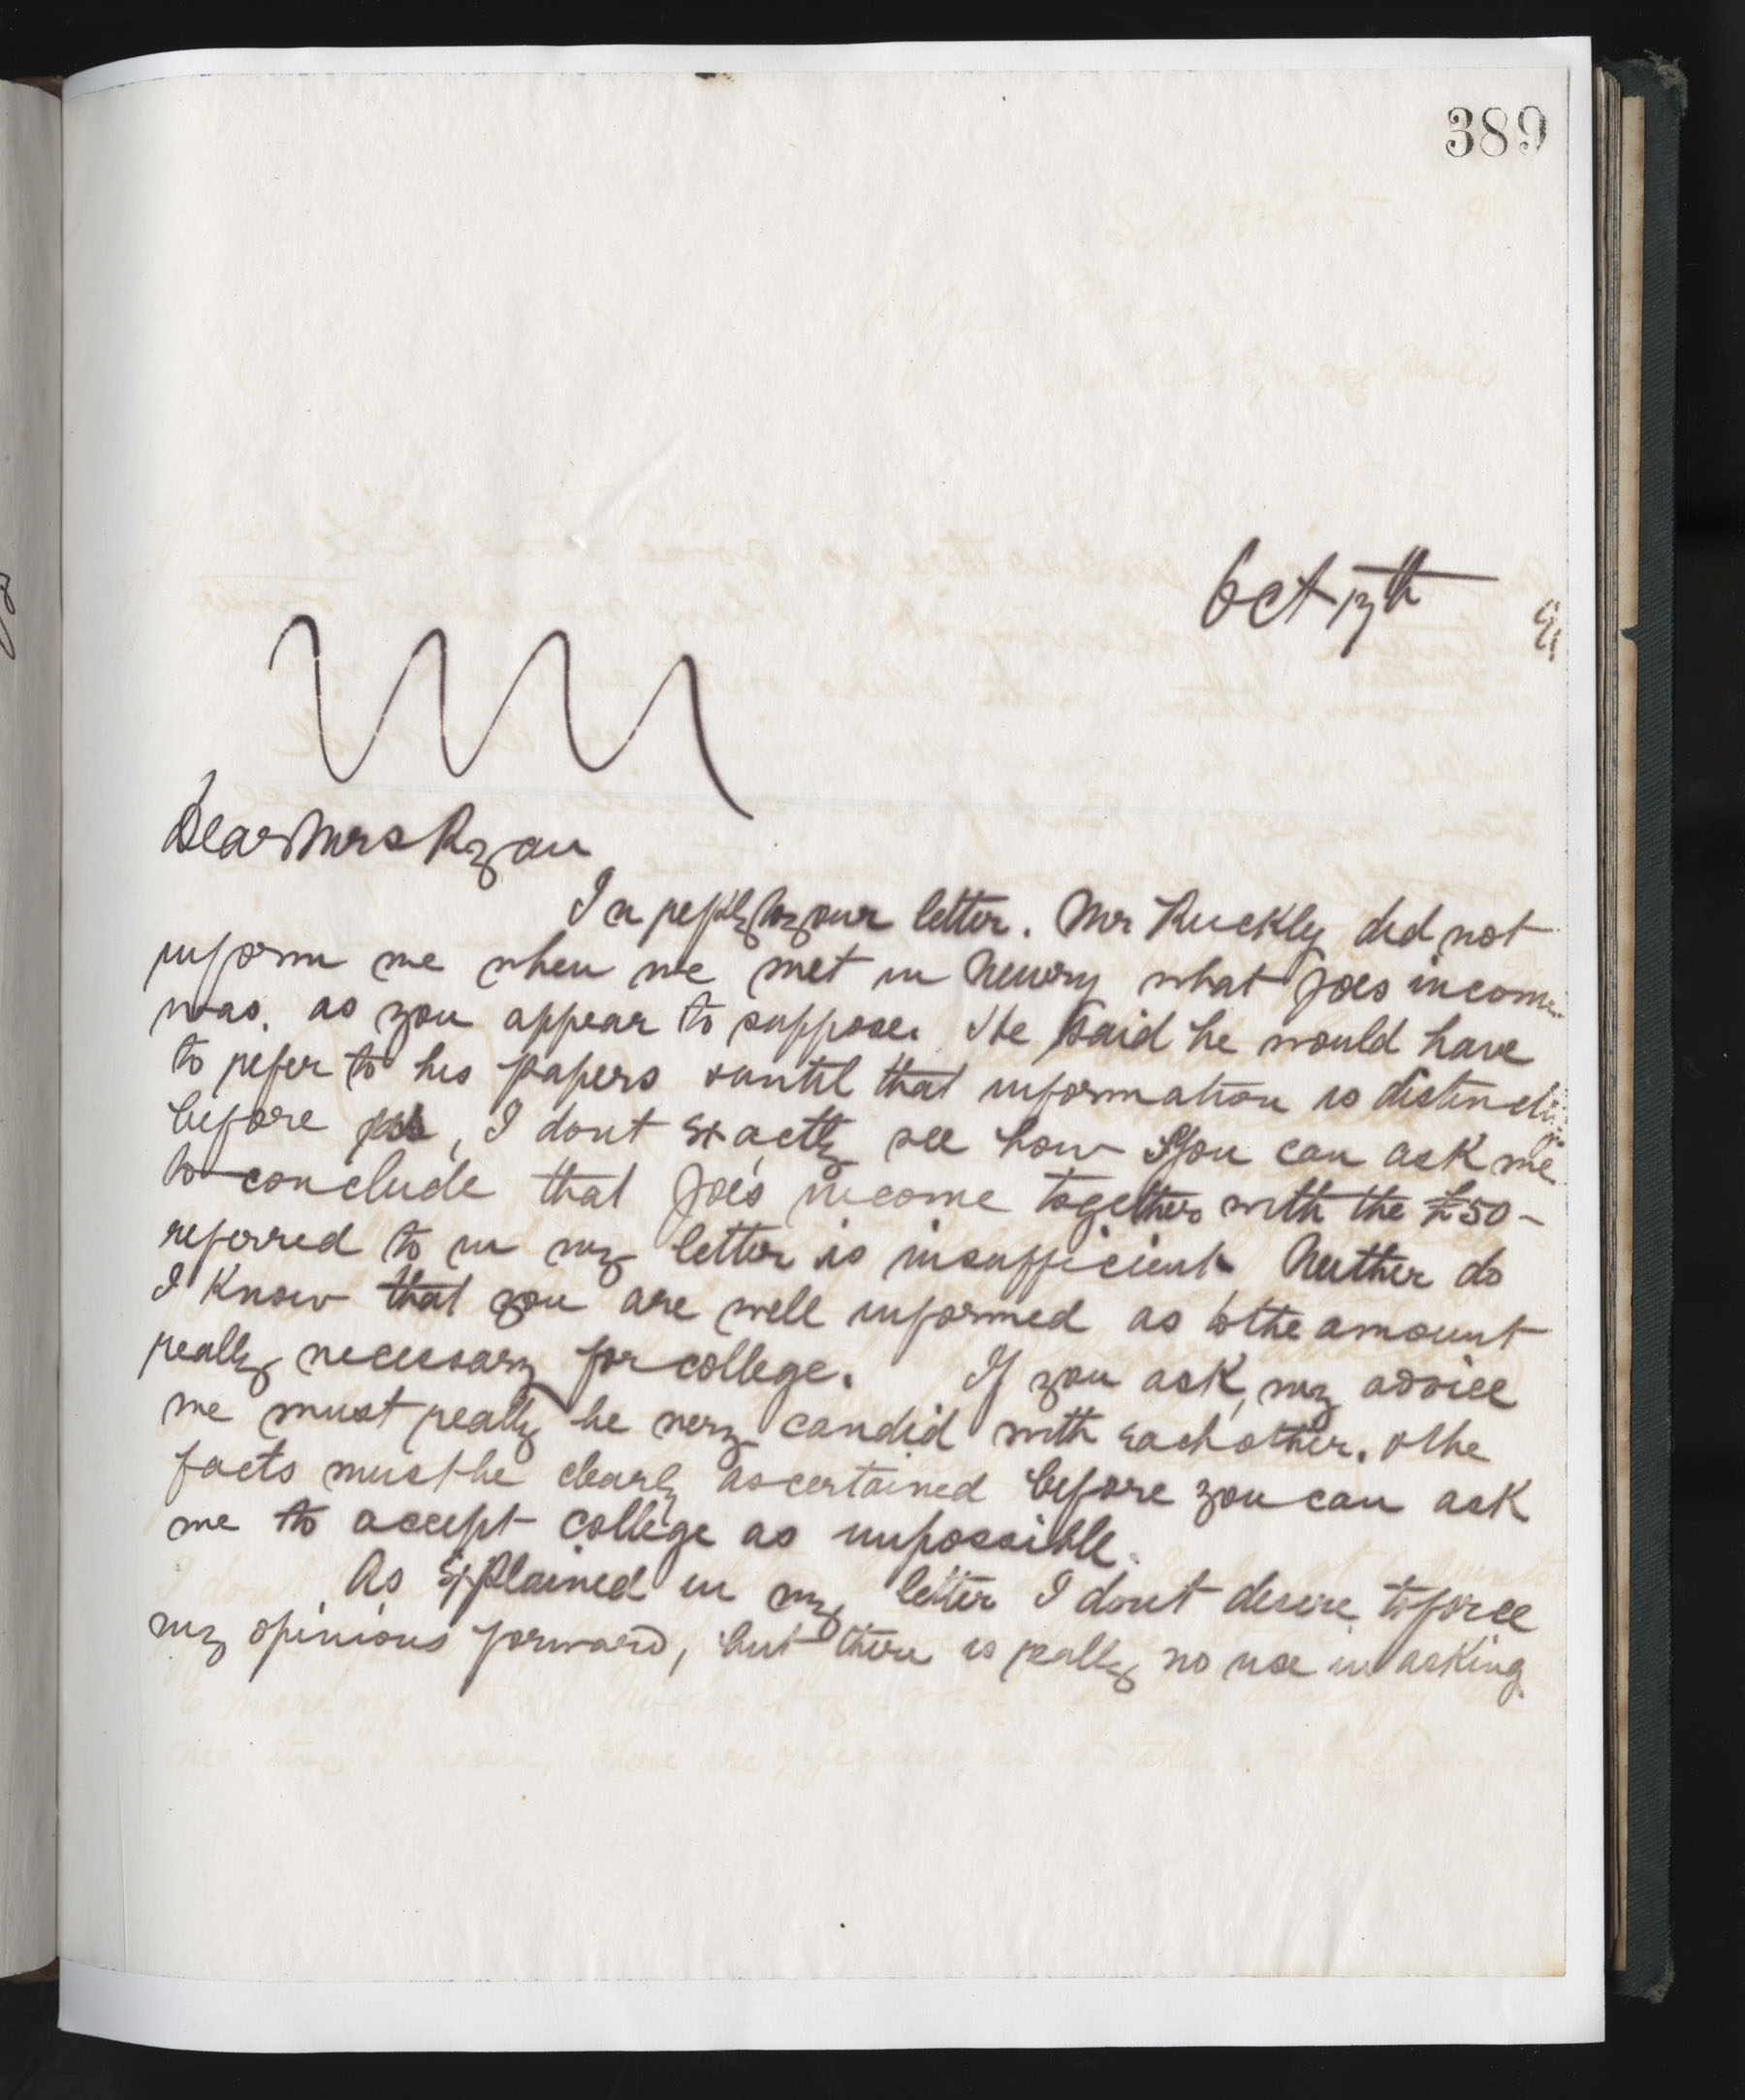 389
Oct 13th
Dear Mrs Ryan
In reply to your letter. Mr Ruckly did not
inform me when we met in Newry what Joes income
was. as you appear to suppose. He said he would have
to refer to his papers & until that information is distinctly
before us, I dont exactly see how you can ask me
to conclude that Joe's income together with the £50-
referred to in my letter is insufficient. Neither do
I know that you are well informed as to the amount
really necessary for college. If you ask my advice
we must really be very candid with each other. & the
facts must be clearly ascertained before you can ask
me to accept college as impossible.
As explained in my letter I dont desire to force
my opinions forward, but there is really no use in asking